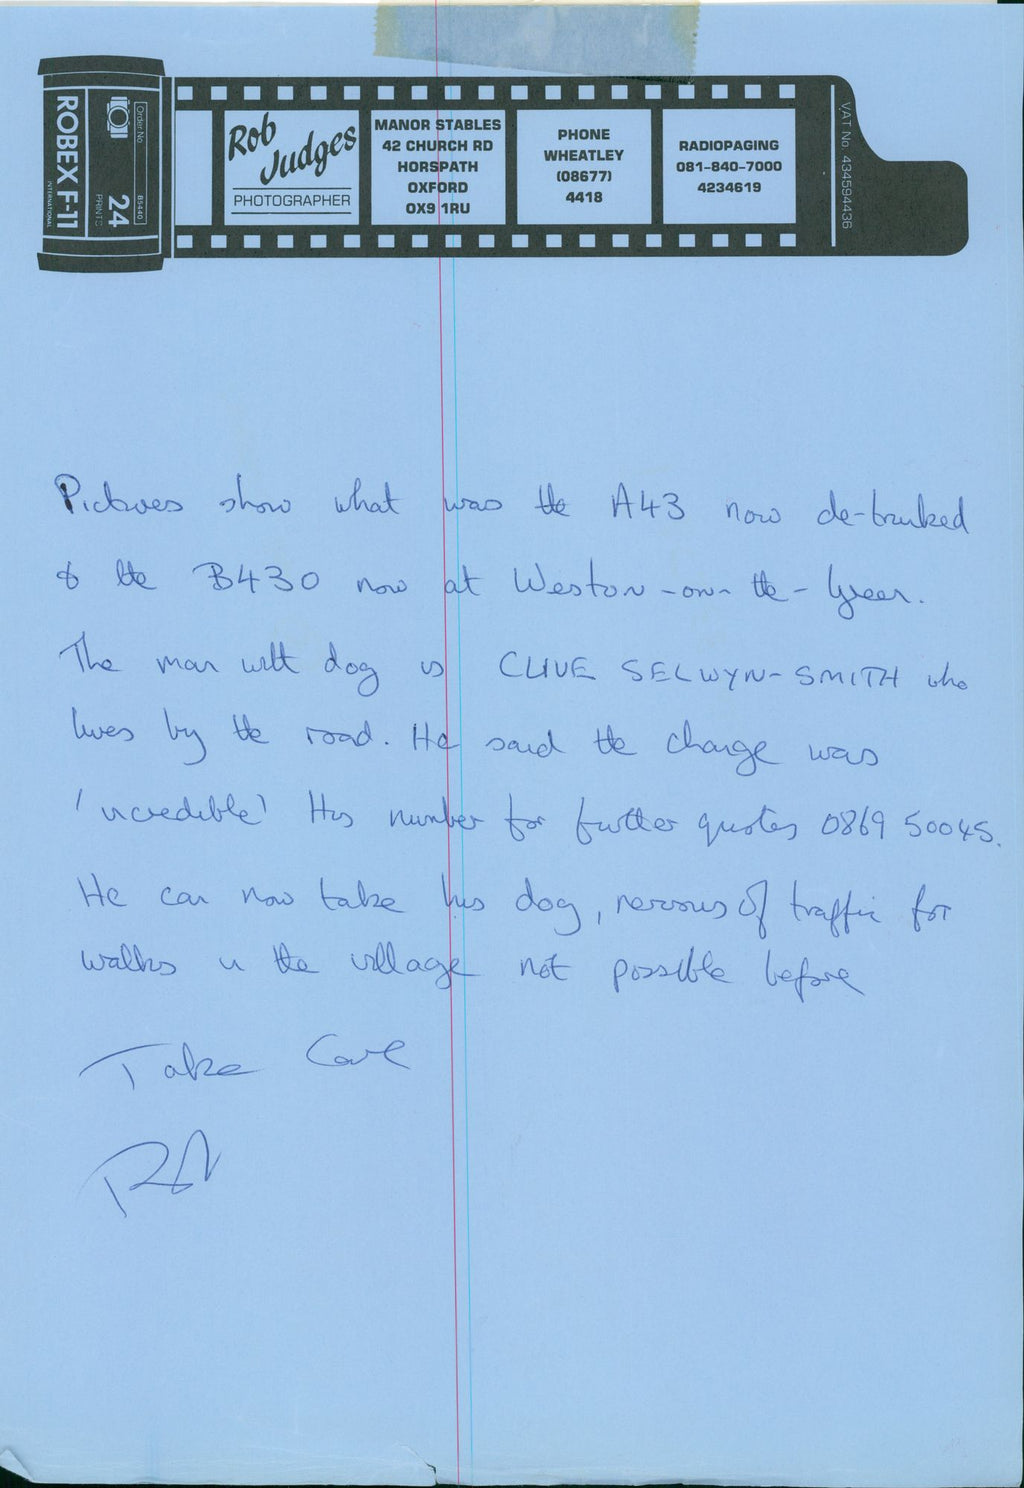 ROBEX F-11
INTERNATIONAL
24
PRINTS
Order No.
Rob
Judges
PHOTOGRAPHER
MANOR STABLES
42 CHURCH RD
HORSPATH
OXFORD
OX9 1RU
PHONE
WHEATLEY
(08677)
4418
RADIOPAGING
081-840-7000
4234619
VAT No. 434594436
Pictures show what was the A43 now de-trunked
to the B430 now at Weston-on-the-Green.
The man with dog is CLIVE SELWYN-SMITH who
lives by the road. He said the change was
'incredible' His number for further quotes 0869 50045.
He can now take his dog, nervous of traffic for
walks in the village not possible before
Take Care
Rob